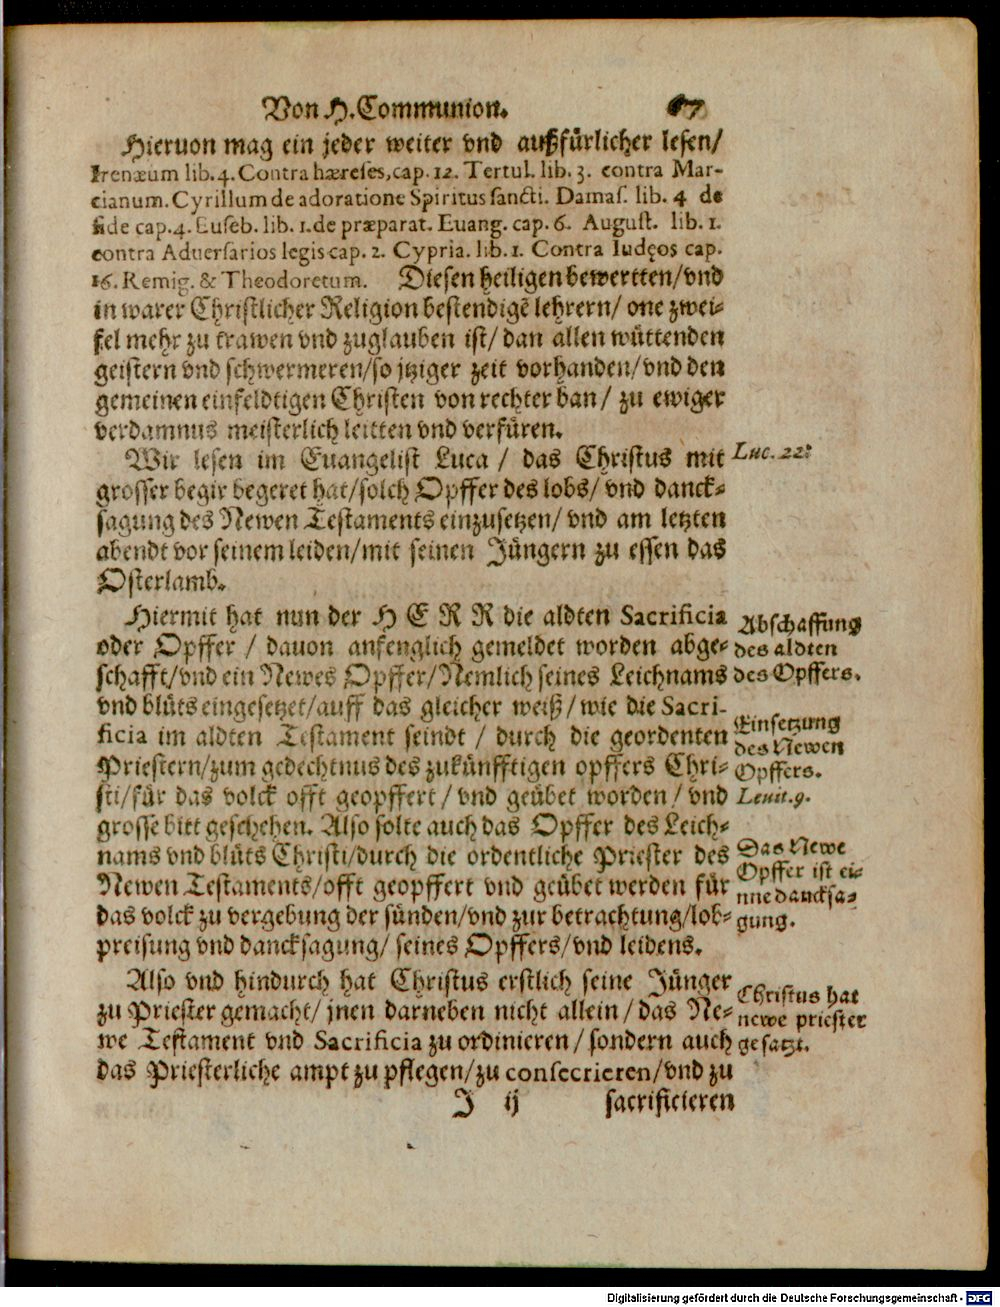 Von H. Communion. 67
Hieruon mag ein jeder weiter vnd außfürlicher lesen/
Irenæum lib. 4. Contra hæreses, cap. 12. Tertul. lib. 3. contra Mar-
cianum. Cyrillum de adoratione Spiritus sancti. Damas. lib. 4 de
fide cap. 4. Euseb. lib. 1. de præparat. Euang. cap. 6. August. lib. 1.
contra Aduersarios legis cap. 2. Cypria. lib. 1. Contra Iudęos cap.
16. Remig. & Theodoretum. Diesen heiligen bewertten/vnd
in warer Christlicher Religion bestendigē lehrern/ one zwei-
fel mehr zu trawen vnd zuglauben ist/ dan allen wüttenden
geistern vnd schwermeren/so jtziger zeit vorhanden/vnd den
gemeinen einfeldtigen Christen von rechter ban/ zu ewiger
verdamnus meisterlich leitten vnd verfüren.
Wir lesen im Euangelist Luca / das Christus mit
Luc. 22:
grosser begir begeret hat/solch Opffer des lobs/ vnd danck-
sagung des Newen Testaments einzusetzen/ vnd am letzten
abendt vor seinem leiden/mit seinen Jüngern zu essen das
Osterlamb.
Hiermit hat nun der HERR die aldten Sacrificia
oder Opffer / dauon anfenglich gemeldet worden abge-
schafft/vnd ein Newes Opffer/Nemlich seines Leichnams
Abschaffung
des aldten
des Opffers.
vnd blüts eingesetzet/auff das gleicher weiß/ wie die Sacri-
ficia im aldten Testament seindt / durch die geordenten
Priestern/zum gedechtnus des zukünfftigen opffers Chri-
Einsetzung
des Newen
Opffers.
sti/für das volck offt geopffert/ vnd geübet worden/ vnd
Leuit. 9.
grosse bitt geschehen. Also solte auch das Opffer des Leich-
nams vnd blüts Christi/durch die ordentliche Priester des
Newen Testaments/offt geopffert vnd geübet werden für
das volck zu vergebung der sünden/vnd zur betrachtung/lob-
Das Newe
Opffer ist ei-
nne dancksa-
gung.
preisung vnd dancksagung/ seines Opffers/vnd leidens.
Also vnd hindurch hat Christus erstlich seine Jünger
zu Priester gemacht/ jnen darneben nicht allein/ das Ne-
we Testament vnd Sacrificia zu ordinieren/ sondern auch
Christus hat
newe priester
gesatzt.
das Priesterliche ampt zu pflegen/zu consecrieren/vnd zu
J ij sacrificieren
Digitalisierung gefördert durch die Deutsche Forschungsgemeinschaft - DFG